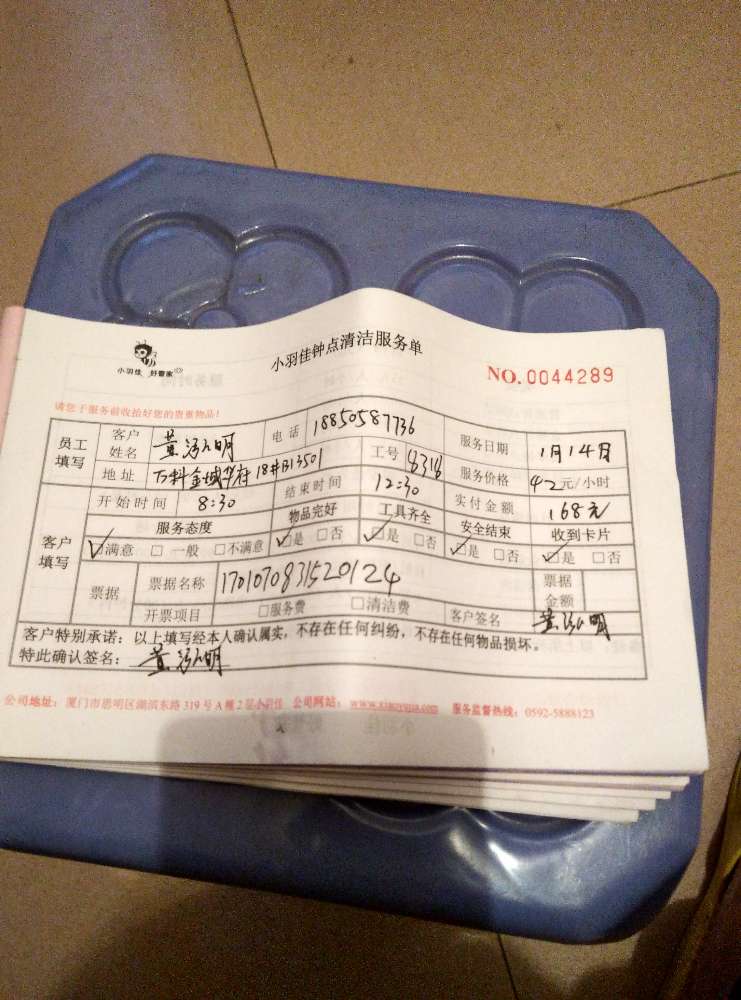 小羽佳 好管家
小羽佳钟点清洁服务单
NO.0044289
请您于服务前收拾好您的贵重物品!
员工填写 客户姓名 黄 明 电话 18850587736 服务日期 1月14月
地址 万科金域华府18#B13501 工号 8318 服务价格 42元/小时
开始时间 8:30 结束时间 12:30 实付金额 168元
客户填写 服务态度 物品完好 工具齐全 安全结束 收到卡片
☑满意 □一般 □不满意 ☑是 □否 ☑是 □否 ☑是 □否 ☑是 □否
票据 票据名称 1701070831520124 票据金额
开票项目 □服务费 □清洁费 客户签名 黄 明
客户特别承诺:以上填写经本人确认属实,不存在任何纠纷,不存在任何物品损坏。
特此确认签名: 黄 明
公司地址:厦门市思明区湖滨东路319号A幢2层小羽佳 公司网站:www.xiaoyujia.com 服务监督热线:0592-5888123